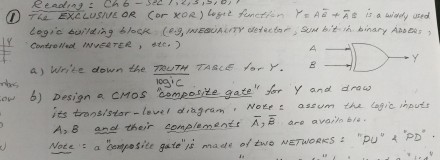 Reading: Ch6 - Sec 1, 2, 3, 5, 6, 7
① The EXCLUSIVE OR (or XOR) logic function Y = AB̄ + ĀB is a widly used
logic building block (e.g, INEQUALITY detector, SUM bit in binary ADDERS,
Controlled INVERTER, etc.)
A
B
Y
a) Write down the TRUTH TABLE for Y.
logic
b) Design a CMOS "composite gate" for Y and draw
its transistor-level diagram. Note: assum the logic inputs
A, B and their complements Ā, B̄ are available.
Note: a "composite gate" is made of two NETWORKS: "PU" & "PD".